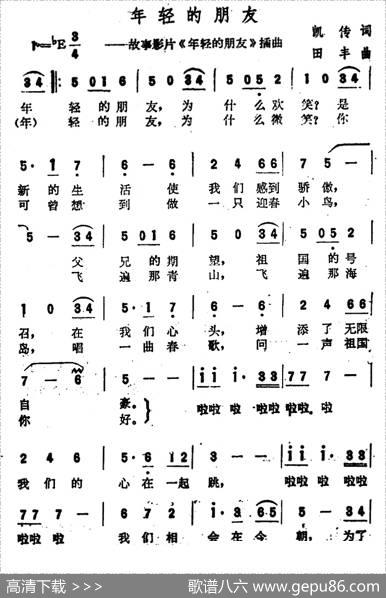 年轻的朋友
1=♭E 3/4
——故事影片《年轻的朋友》插曲
凯传 词
田丰 曲
3 4 5 0 1 6 5 0 1 6 5 — 3 4 5 0 5 2 5 0 1 6 5 — 3 4
年 轻的朋友,为 什么欢笑?是
(年) 轻的朋友,为 什么微笑?你
5· 1 7 6 — 6 6 — 5 2 4 6 6 7 5 —
新的生 活使 我们感到骄傲,
可曾想 到做 一只迎春小鸟,
5 — 3 4 5 0 1 6 5 — 5 0 3 4 5 0 5 2
父兄的期 望,祖国的号
飞遍那青 山,飞遍那海
1 0 3 4 5· 1 7 6 — 6 6 — 6 2 4 6 6
召,在我们心 头,增添了无限
岛,唱一曲春 歌,问一声祖国
7 — 6 5 — — i i i· i 3 3 7 7 7 —
自 豪。 啦啦 啦 啦啦啦啦 啦
你 好。
2 4 6 5· 6 1 2 3 — — i i i· i 3 3
我们的 心在一起 跳, 啦啦 啦 啦啦
7 7 7 — 6 7 2 1· 3 6 5 5 — 3 4
啦啦 啦 我们相 会在今 朝,为了
高清下载 >>>
歌谱八六 www.gepu86.com